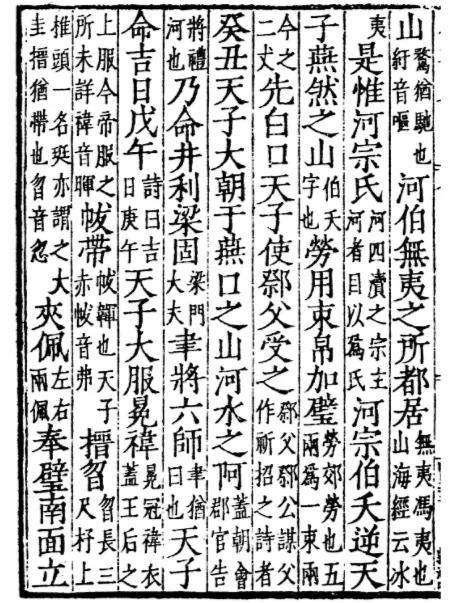 山鶩猶馳也紆音嘔河伯無夷之所都居無夷馮夷也山海經云冰
夷是惟河宗氏河四瀆之宗主河者目以爲氏河宗伯夭逆天
子燕然之山伯夭字也勞用束帛加璧勞郊勞也五兩爲一束兩
今之二丈先白口天子使父受之父公謀父作祈招之詩者
癸丑天子大朝于燕口之山河水之阿蓋朝會郡官告
將禮河也乃命井利梁固梁門大夫聿將六師聿猶曰也天子
命吉日戊午詩曰吉日庚午天子大服冕褘冕冠褘衣蓋王后之
上服今帝服之所未詳褘音暉帗帶帗韠也天子赤帗音弗搢曶曶長三尺杼上
推頭一名珽亦謂之大圭搢猶帶也曶音忽夾佩左右兩佩奉璧南面立